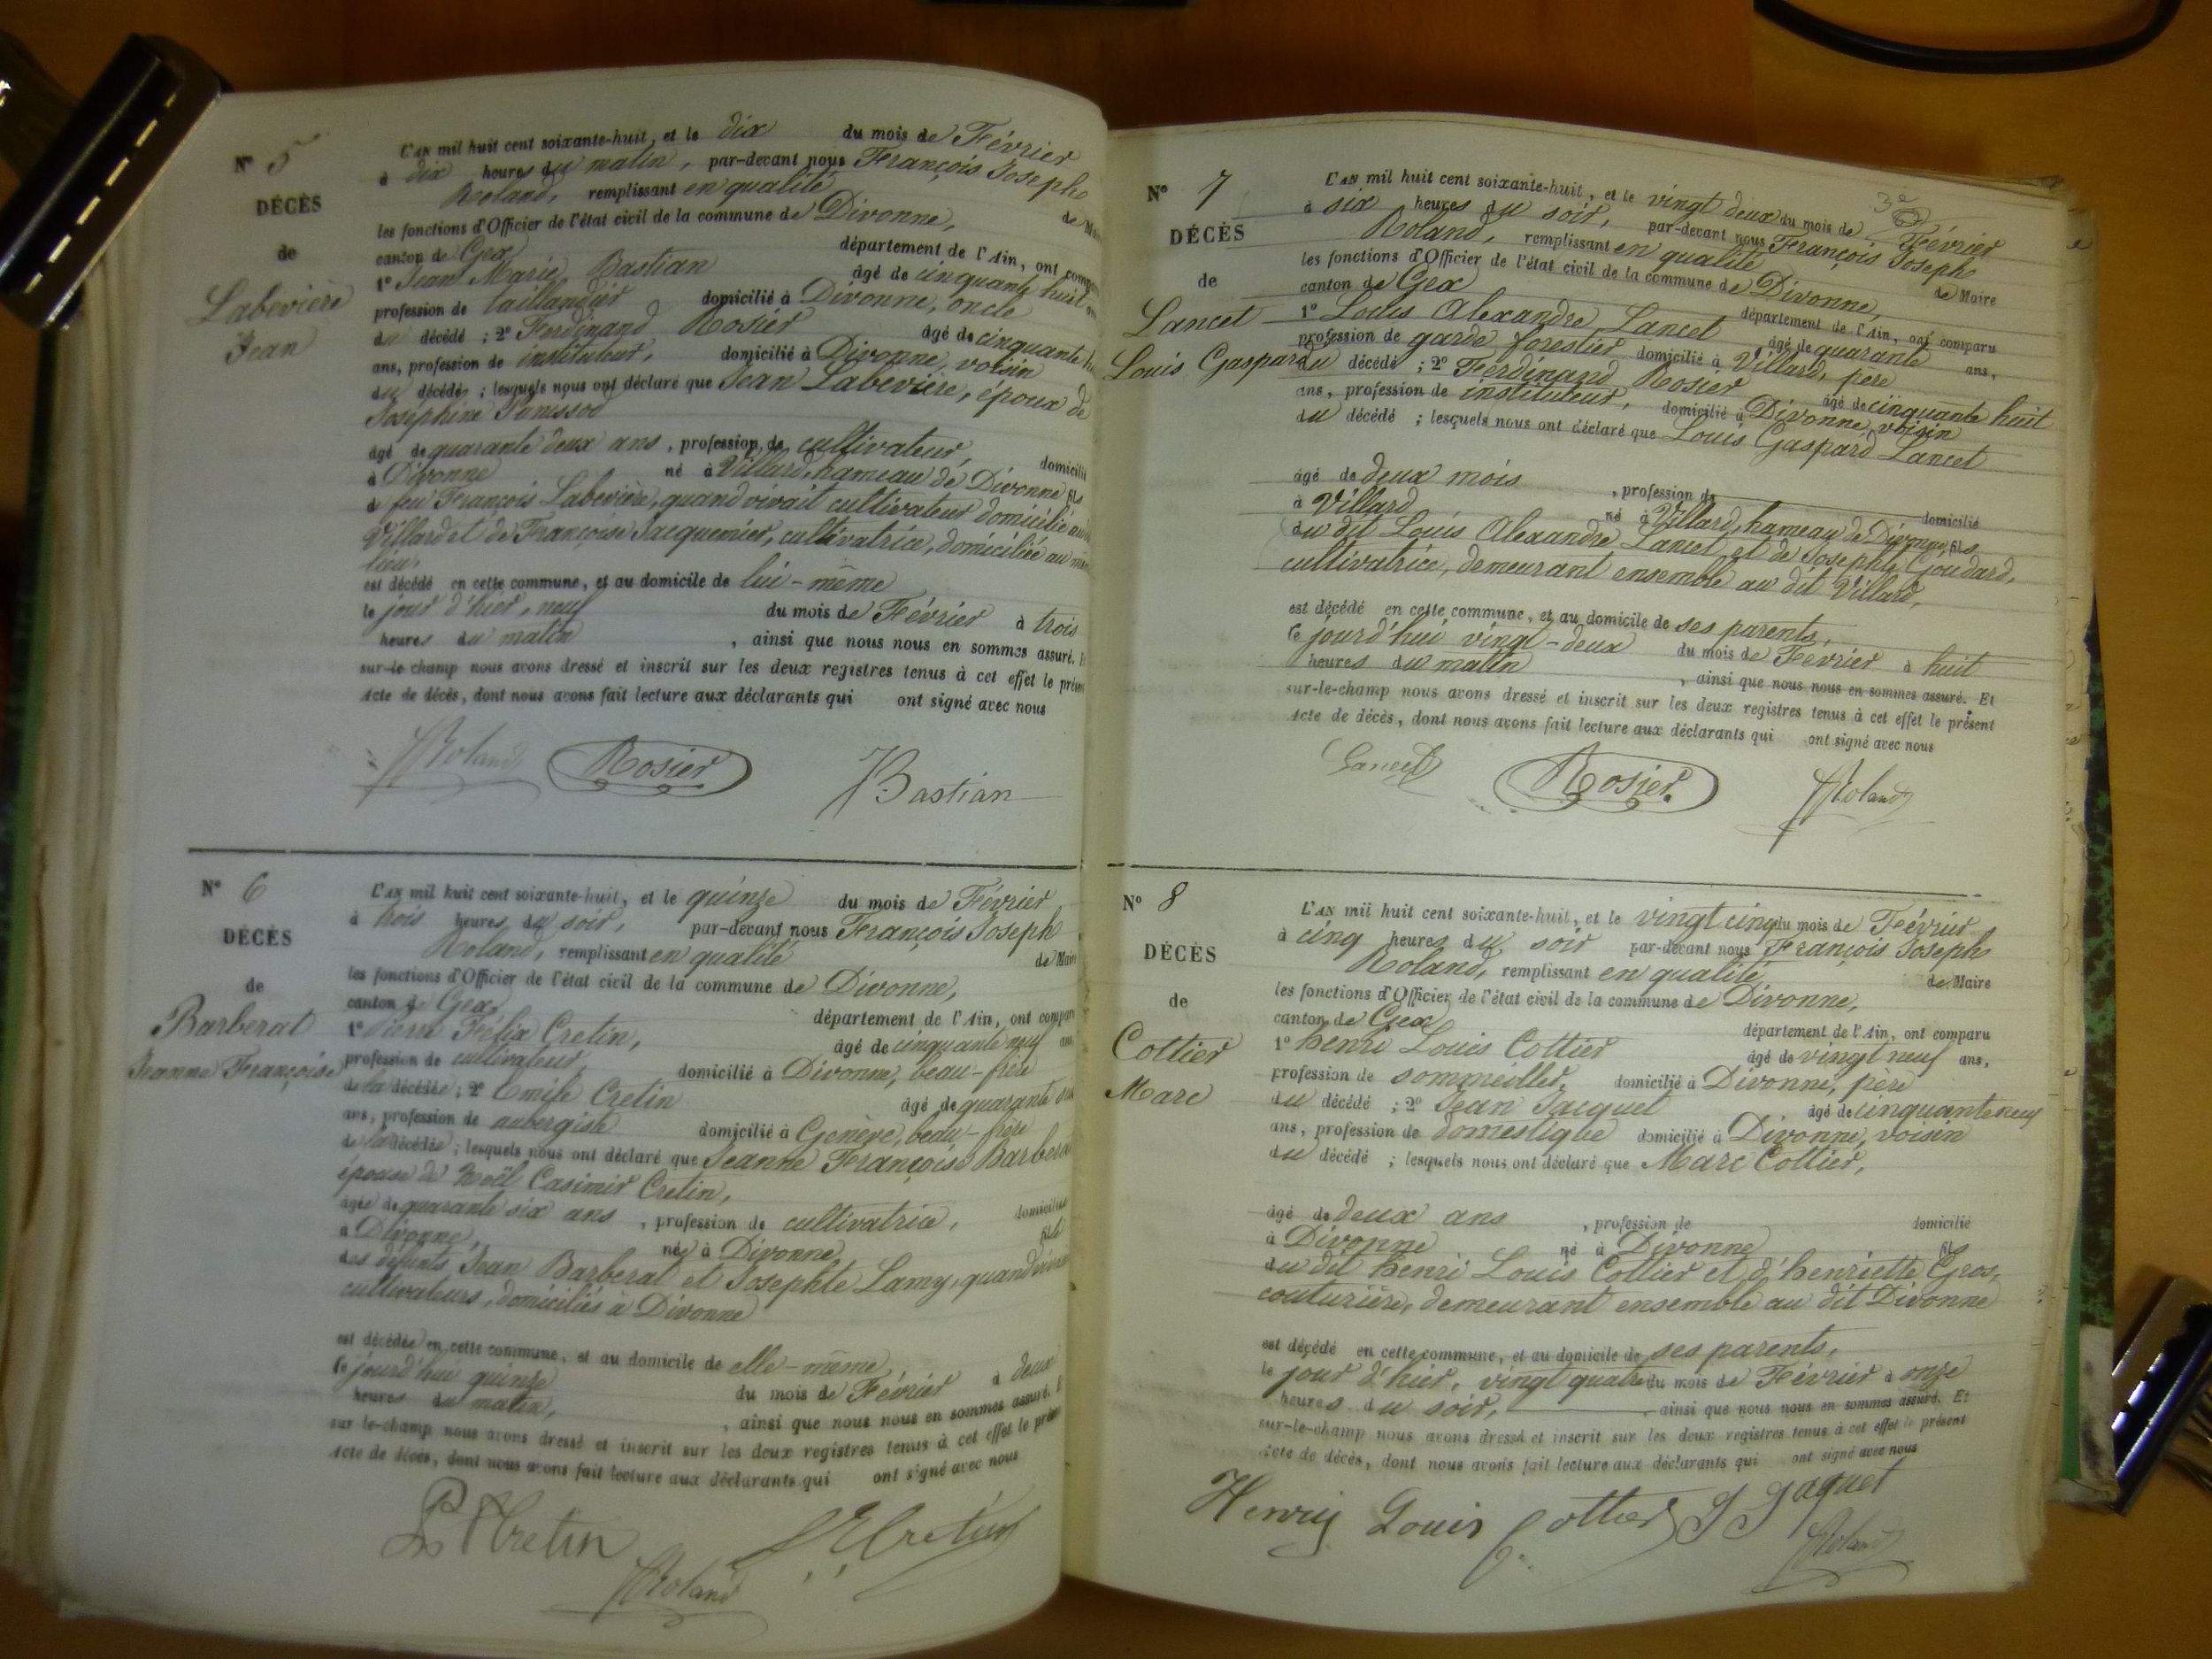 N° 5
DÉCÈS
de
Labevière
Jean
L'AN mil huit cent soixante-huit, et le dix du mois de Février
à dix heures du matin, par-devant nous François Joseph
Roland, remplissant en qualité de
les fonctions d'Officier de l'état civil de la commune de Divonne,
canton de Gex département de l'Ain, ont
1° Jean Marie Bastian âgé de cinquante huit
profession de taillandier domicilié à Divonne, oncle
du décédé ; 2° Ferdinand Rosier âgé de cinquante
ans, profession de instituteur, domicilié à Divonne, voisin
du décédé ; lesquels nous ont déclaré que Jean Labevière, époux de
Joséphine Panissod
âgé de quarante deux ans, profession de cultivateur,
à Divonne né à Villard, hameau de Divonne fils
de feu François Labevière, quand vivait cultivateur domicilié au
Villard et de Françoise Jacquemier, cultivatrice, domiciliée au
lieu,
est décédé en cette commune, et au domicile de lui-même
le jour d'hier, neuf du mois de Février à trois
heures du matin, ainsi que nous nous en sommes assuré.
sur-le-champ nous avons dressé et inscrit sur les deux registres tenus à cet effet le
acte de décès, dont nous avons fait lecture aux déclarants qui ont signé avec nous
Roland Rosier Bastian
N° 6
DÉCÈS
de
Barberat
Jeanne Françoise
L'AN mil huit cent soixante-huit, et le quinze du mois de Février
à trois heures du soir, par-devant nous François Joseph
Roland, remplissant en qualité de Maire
les fonctions d'Officier de l'état civil de la commune de Divonne,
canton de Gex département de l'Ain, ont
1° Pierre Félix Cretin, âgé de cinquante neuf
profession de cultivateur, domicilié à Divonne, beau-frère
de la décédée ; 2° Emile Cretin âgé de quarante
ans, profession de aubergiste domicilié à Genève, beau-frère
de la décédée ; lesquels nous ont déclaré que Jeanne Françoise Barberat
épouse de Noël Casimir Cretin,
âgée de quarante six ans, profession de cultivatrice, domiciliée
à Divonne, née à Divonne fille
des défunts Jean Barberat et Josephte Lamy, quand
cultivateurs, domiciliés à Divonne
est décédée en cette commune, et au domicile de elle-même,
le jourd'hui quinze du mois de Février à deux
heures du matin, ainsi que nous nous en sommes assuré.
sur-le-champ nous avons dressé et inscrit sur les deux registres tenus à cet effet le
acte de décès, dont nous avons fait lecture aux déclarants qui ont signé avec nous
Cretin Cretin
Roland
N° 7
DÉCÈS
de
Lancet
Louis Gaspard
L'AN mil huit cent soixante-huit, et le vingt deux du mois de Février
à six heures du soir, par-devant nous François Joseph
Roland, remplissant en qualité de Maire
les fonctions d'Officier de l'état civil de la commune de Divonne,
canton de Gex département de l'Ain, ont comparu
1° Louis Alexandre Lancet âgé de quarante ans,
profession de garde forestier domicilié à Villard, père
du décédé ; 2° Ferdinand Rosier âgé de cinquante huit
ans, profession de instituteur, domicilié à Divonne, voisin
du décédé ; lesquels nous ont déclaré que Louis Gaspard Lancet
âgé de deux mois, profession de domicilié
à Villard né à Villard, hameau de Divonne, fils
du dit Louis Alexandre Lancet et de Josephte Goudard,
cultivatrice, demeurant ensemble au dit Villard,
est décédé en cette commune, et au domicile de ses parents,
le jourd'hui vingt-deux du mois de Février à huit
heures du matin, ainsi que nous nous en sommes assuré. Et
sur-le-champ nous avons dressé et inscrit sur les deux registres tenus à cet effet le présent
acte de décès, dont nous avons fait lecture aux déclarants qui ont signé avec nous
Lancet Rosier. Roland
N° 8
DÉCÈS
de
Cottier
Marc
L'AN mil huit cent soixante-huit, et le vingt cinq du mois de Février
à cinq heures du soir par-devant nous François Joseph
Roland, remplissant en qualité de Maire
les fonctions d'Officier de l'état civil de la commune de Divonne,
canton de Gex département de l'Ain, ont comparu
1° henri Louis Cottier âgé de vingt neuf ans,
profession de sommeiller, domicilié à Divonne, père
du décédé ; 2° Jean Jacquet âgé de cinquante neuf
ans, profession de domestique domicilié à Divonne, voisin
du décédé ; lesquels nous ont déclaré que Marc Cottier,
âgé de deux ans, profession de domicilié
à Divonne né à Divonne fils
du dit henri Louis Cottier et d'henriette Gros,
couturière, demeurant ensemble au dit Divonne
est décédé en cette commune, et au domicile de ses parents,
le jour d'hier, vingt quatre du mois de Février à onze
heures du soir, ainsi que nous nous en sommes assuré. Et
sur-le-champ nous avons dressé et inscrit sur les deux registres tenus à cet effet le présent
acte de décès, dont nous avons fait lecture aux déclarants qui ont signé avec nous
Henry Louis Cottier J Jaquet
Roland